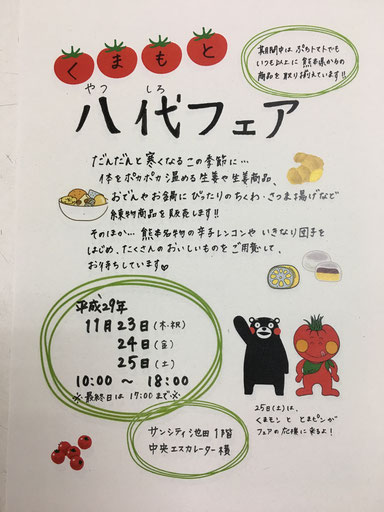 くまもと
やつしろ
八代フェア
期間中は、ぷちトマトでも
いつも以上に熊本県からの
商品を取り揃えています!!
だんだんと寒くなるこの季節に…
体をポカポカ温める生姜や生姜商品、
おでんやお鍋にぴったりのちくわ・さつま揚げなど
練り物商品を販売します!!
そのほか…熊本名物の辛子レンコンやいきなり団子を
はじめ、たくさんのおいしいものをご用意して、
お待ちしています♡
平成29年
11月23日(木・祝)
24日(金)
25日(土)
10:00 〜 18:00
※最終日は17:00まで※
25日(土)は、
くまモンととまピンが
フェアの応援に来るよ!
サンシティ池田1階
中央エスカレーター横